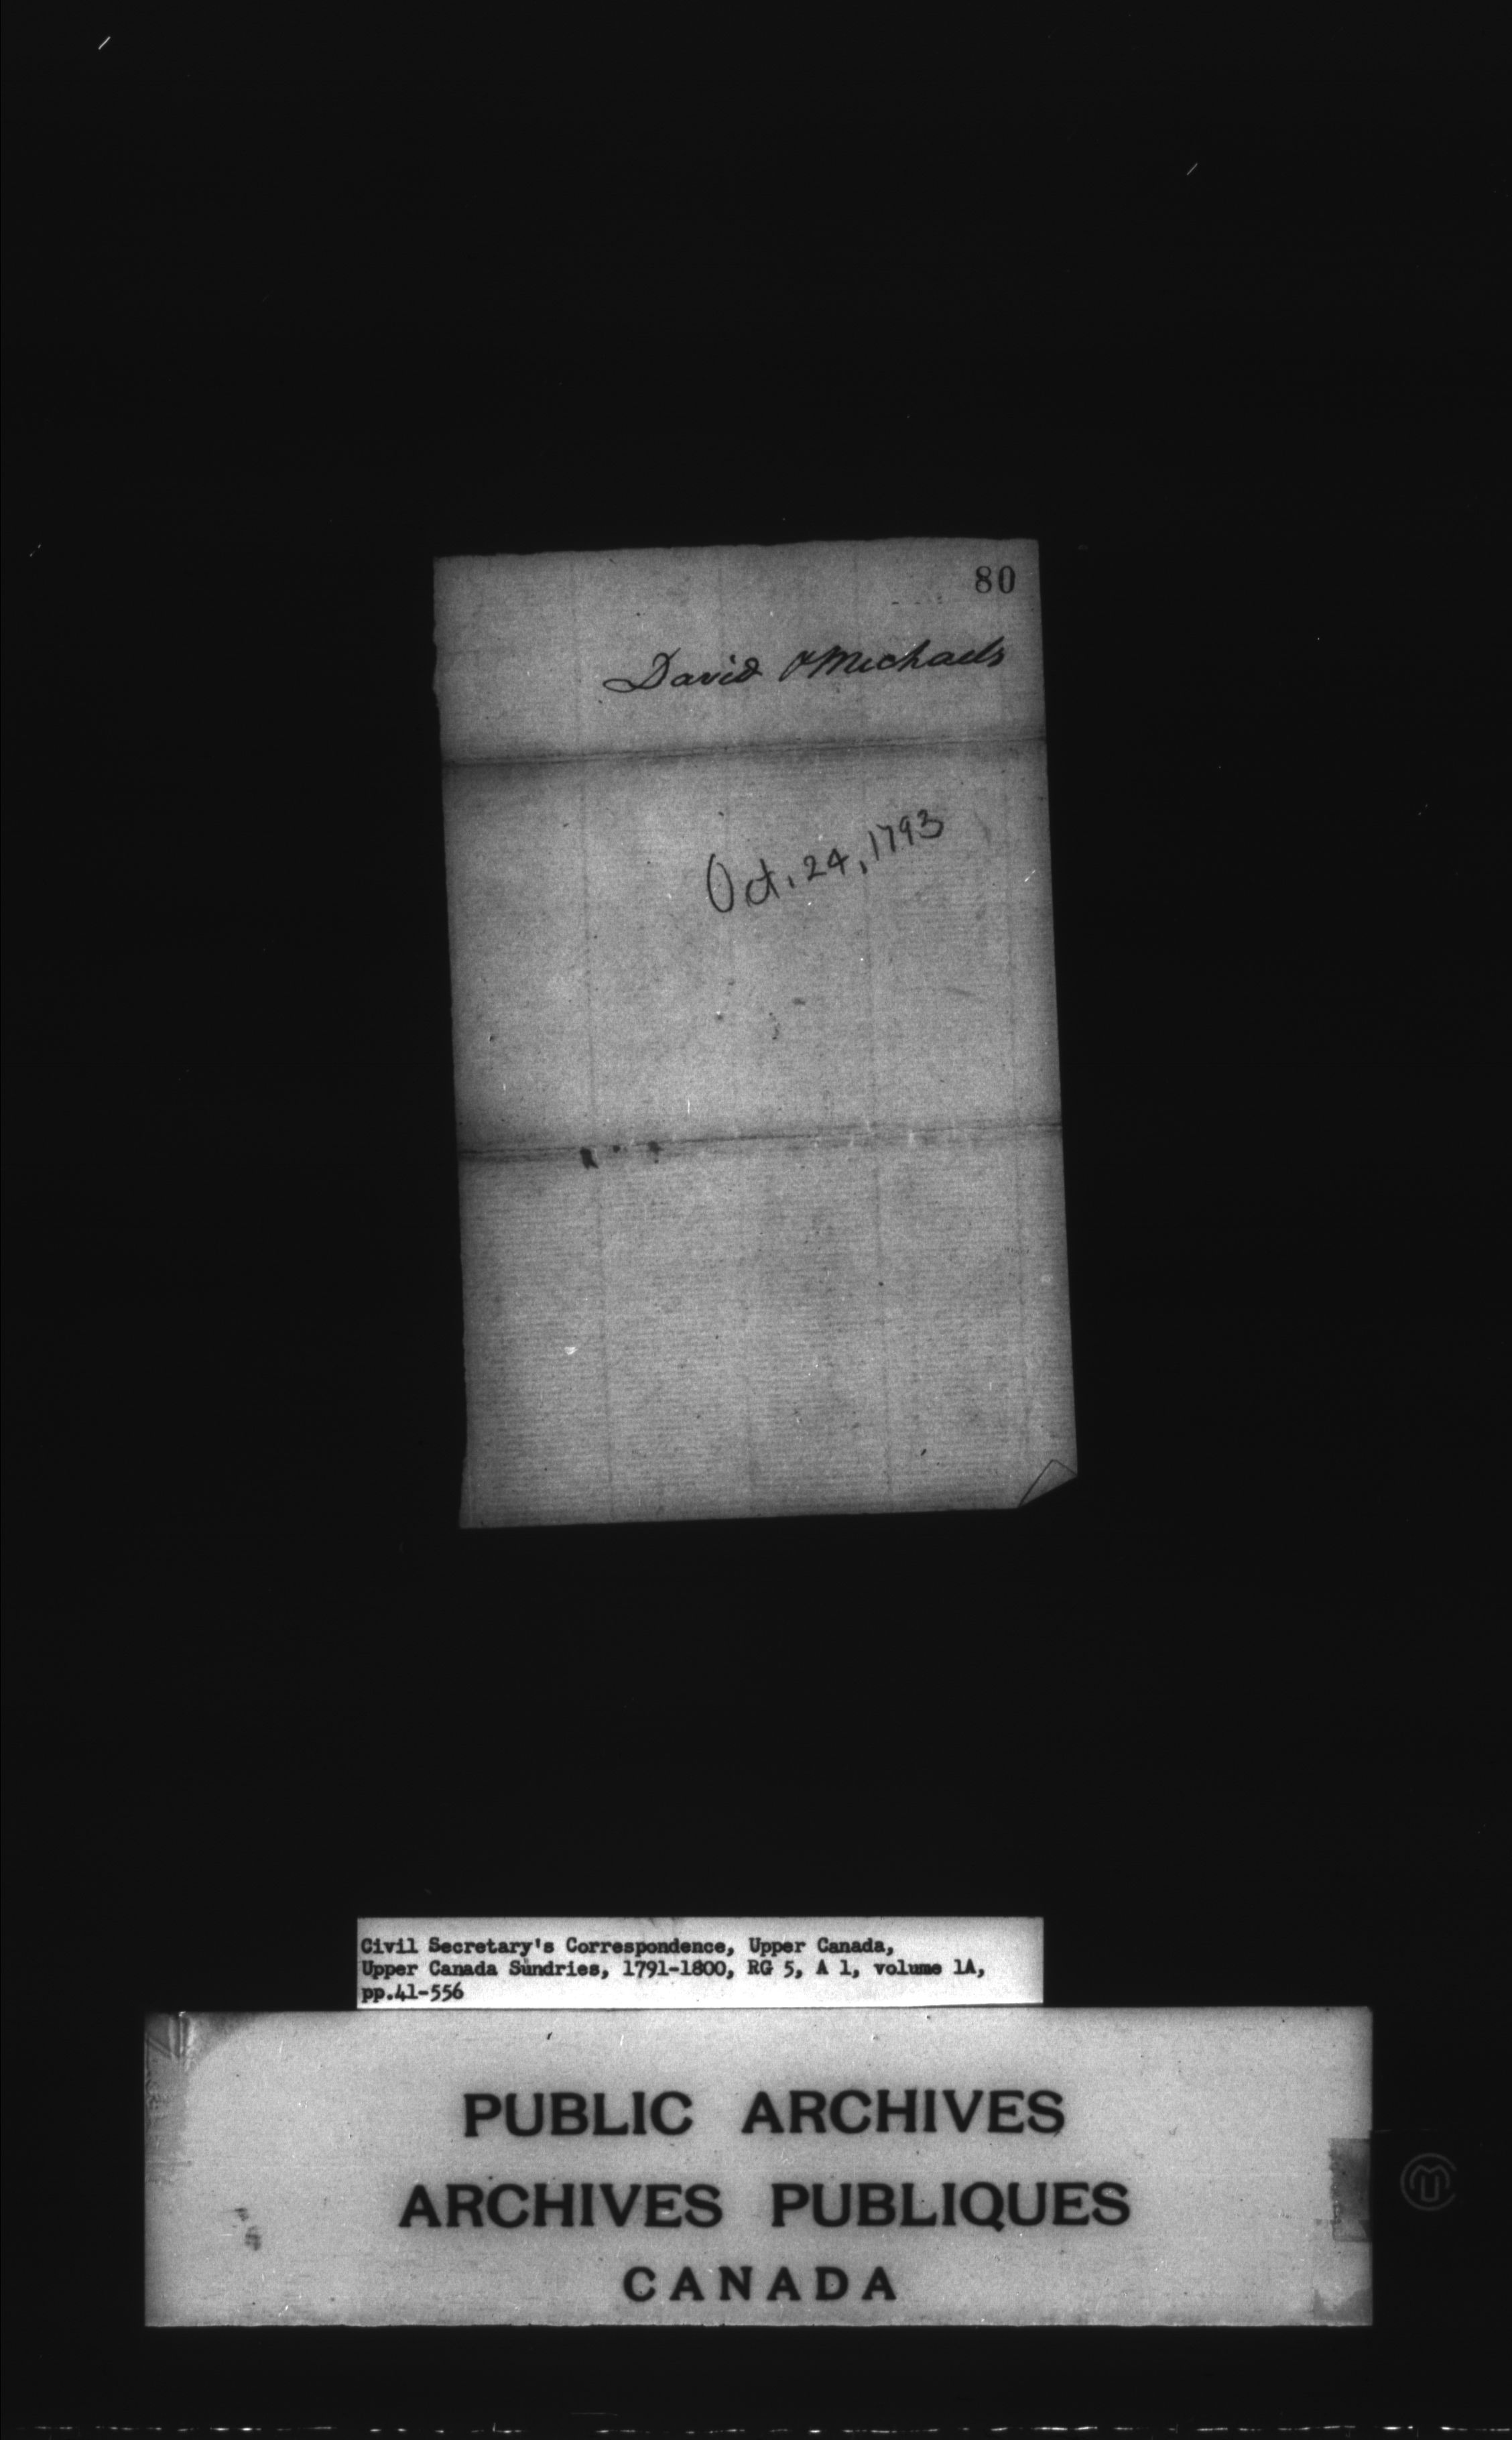 80
David O'Michaels
Oct. 24, 1793
Civil Secretary's Correspondence, Upper Canada,
Upper Canada Sundries, 1791-1800, RG 5, A 1, volume 1A,
pp.41-556
PUBLIC ARCHIVES
ARCHIVES PUBLIQUES
CANADA